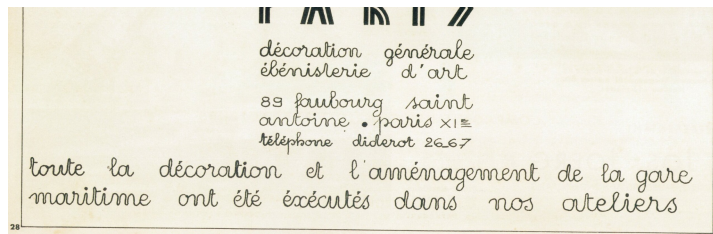 PARIS
décoration générale
ébénisterie d'art
89 faubourg saint
antoine • paris XIe
téléphone diderot 26-67
toute la décoration et l'aménagement de la gare
maritime ont été éxécutés dans nos ateliers
28